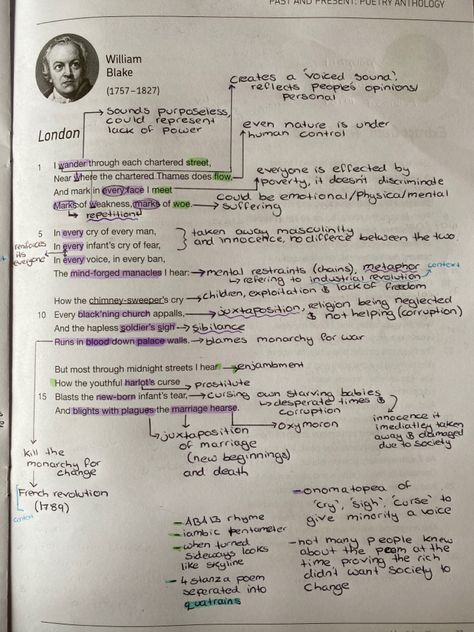 PAST AND PRESENT: POETRY ANTHOLOGY
William
Blake
(1757–1827)
creates a 'voiced sound',
reflects people's opinions/
personal
sounds purposeless,
could represent
lack of power
even nature is under
human control
London
everyone is effected by
poverty, it doesn't discriminate
could be emotional/physical/mental
suffering
1 I wander through each chartered street,
Near where the chartered Thames does flow,
And mark in every face I meet
Marks of weakness, marks of woe.
repetition
5 In every cry of every man,
In every infant's cry of fear,
In every voice, in every ban,
The mind-forged manacles I hear:
reinforces
its
everyone
taken away masculinity
and innocence, no differce between the two.
mental restraints (chains), metaphor
context
referring to industrial revolution
How the chimney-sweeper's cry
10 Every black'ning church appalls,
And the hapless soldier's sigh
Runs in blood down palace walls.
children, exploitation & lack of freedom
juxtaposition, religion being neglected
& not helping (corruption)
sibilance
blames monarchy for war
But most through midnight streets I hear
How the youthful harlot's curse
15 Blasts the new-born infant's tear,
And blights with plagues the marriage hearse.
enjambment
prostitute
cursing own starving babies
desperate times &
corruption
oxymoron
innocence it
imediatley taken
away & damaged
due to society
juxtaposition
of marriage
(new beginnings)
and death
kill the
monarchy for
change
French revolution
(1789)
context
- ABAB rhyme
- iambic pentameter
- when turned
sideways looks
like skyline
- 4 stanza poem
seperated into
quatrains
- onomatopea of
'cry', 'sigh', 'curse' to
give minority a voice
- not many people knew
about the poem at the
time proving the rich
didn't want society to
change